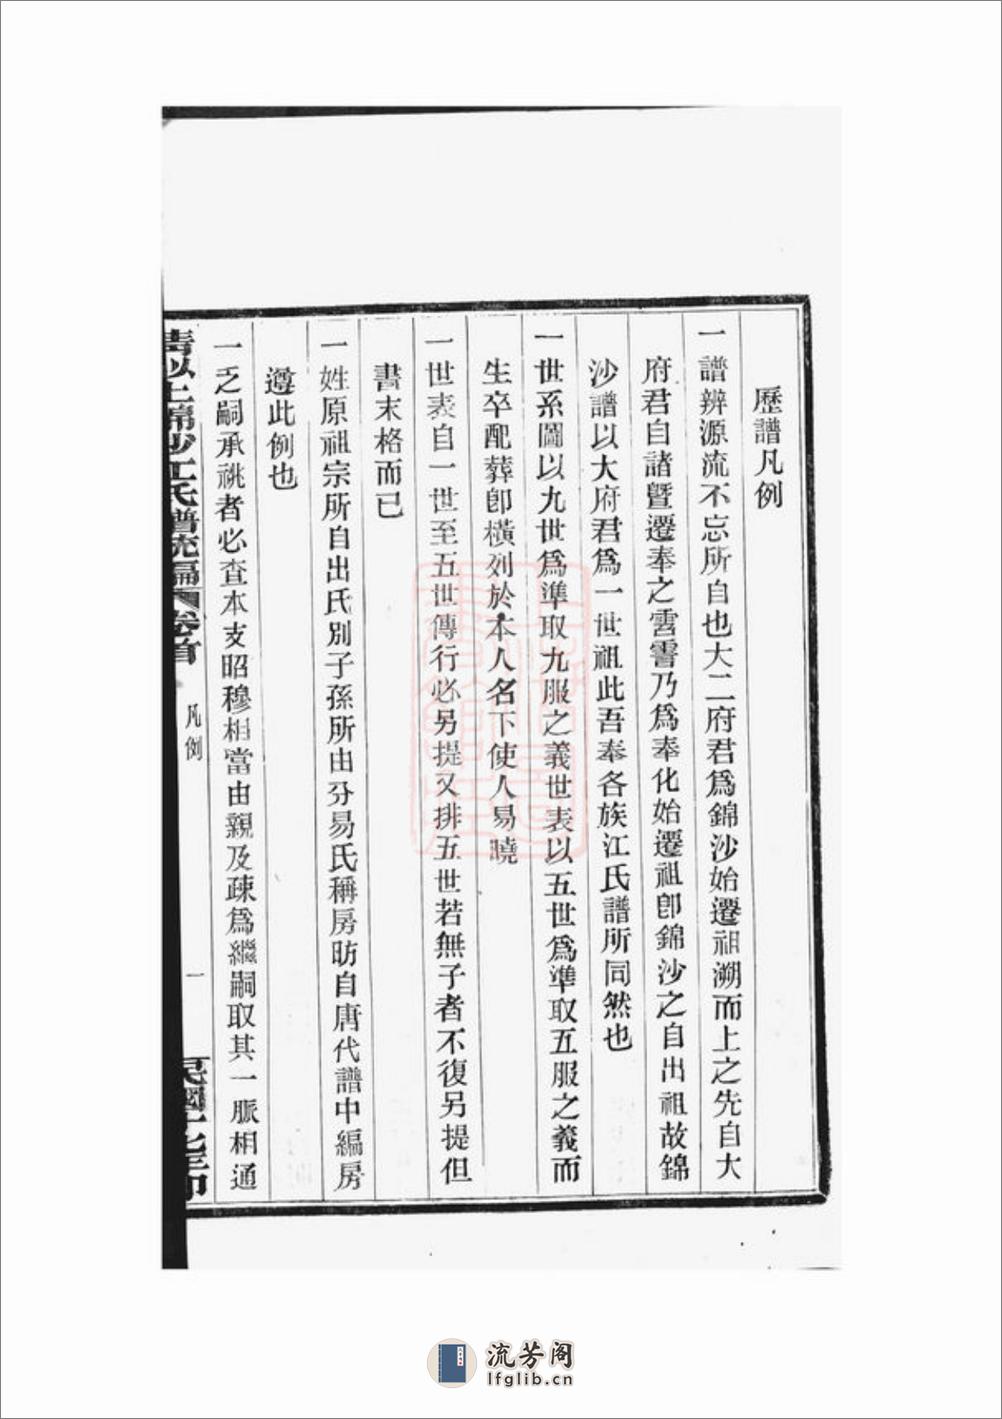 歷譜凡例
一譜辨源流不忘所自也大二府君爲錦沙始遷祖溯而上之先自大
府君自諸暨遷奉之雲霅乃爲奉化始遷祖卽錦沙之自出祖故錦
沙譜以大府君爲一世祖此吾奉各族江氏譜所同然也
一世系圖以九世爲準取九服之義世表以五世爲準取五服之義而
生卒配葬卽橫列於本人名下使人易曉
一世表自一世至五世傳行必另提又排五世若無子者不復另提但
書末格而已
一姓原祖宗所自出氏別子孫所由分易氏稱房昉自唐代譜中編房
遵此例也
一乏嗣承祧者必查本支昭穆相當由親及疎爲繼嗣取其一脈相通
錦沙江氏譜統編 卷首 凡例 一 民國
流芳阁
lfglib.cn